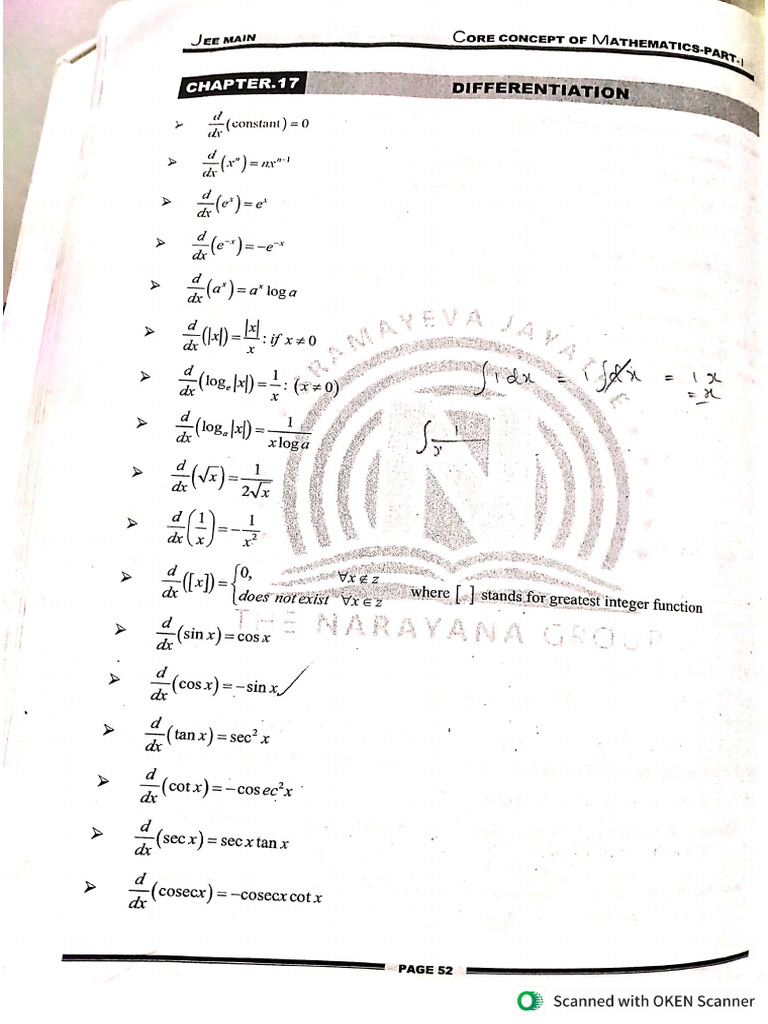 JEE MAIN CORE CONCEPT OF MATHEMATICS-PART-I
CHAPTER.17 DIFFERENTIATION
➢ d/dx (constant) = 0
➢ d/dx (xⁿ) = nxⁿ⁻¹
➢ d/dx (eˣ) = eˣ
➢ d/dx (e⁻ˣ) = −e⁻ˣ
➢ d/dx (aˣ) = aˣ log a
➢ d/dx (|x|) = |x|/x : if x ≠ 0
➢ d/dx (logₑ|x|) = 1/x : (x ≠ 0) ∫ 1 dx = 1 ∫ dx = 1 x
= x
➢ d/dx (logₐ|x|) = 1/(x log a) ∫ 1/x
➢ d/dx (√x) = 1/(2√x)
➢ d/dx (1/x) = −1/x²
➢ d/dx ([x]) = {0, ∀x ∉ z
does not exist ∀x ∈ z where [ ] stands for greatest integer function
THE NARAYANA GROUP
➢ d/dx (sin x) = cos x
➢ d/dx (cos x) = −sin x ✓
➢ d/dx (tan x) = sec² x
➢ d/dx (cot x) = −cos ec²x
➢ d/dx (sec x) = sec x tan x
➢ d/dx (cosecx) = −cosecx cot x
PAGE 52
Scanned with OKEN Scanner